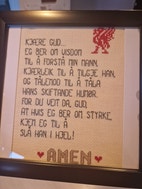 KJÆRE GUD...
EG BER OM VISDOM
TIL Å FORSTÅ MIN MANN,
KJÆRLEIK TIL Å TILGJE HAN,
OG TÅLMOD TIL Å TÅLA
HANS SKIFTANDE HUMØR.
FOR DU VEIT DA, GUD,
AT HVIS EG BER OM STYRKE,
KJEM EG TIL Å
SLÅ HAN I HJEL!
AMEN